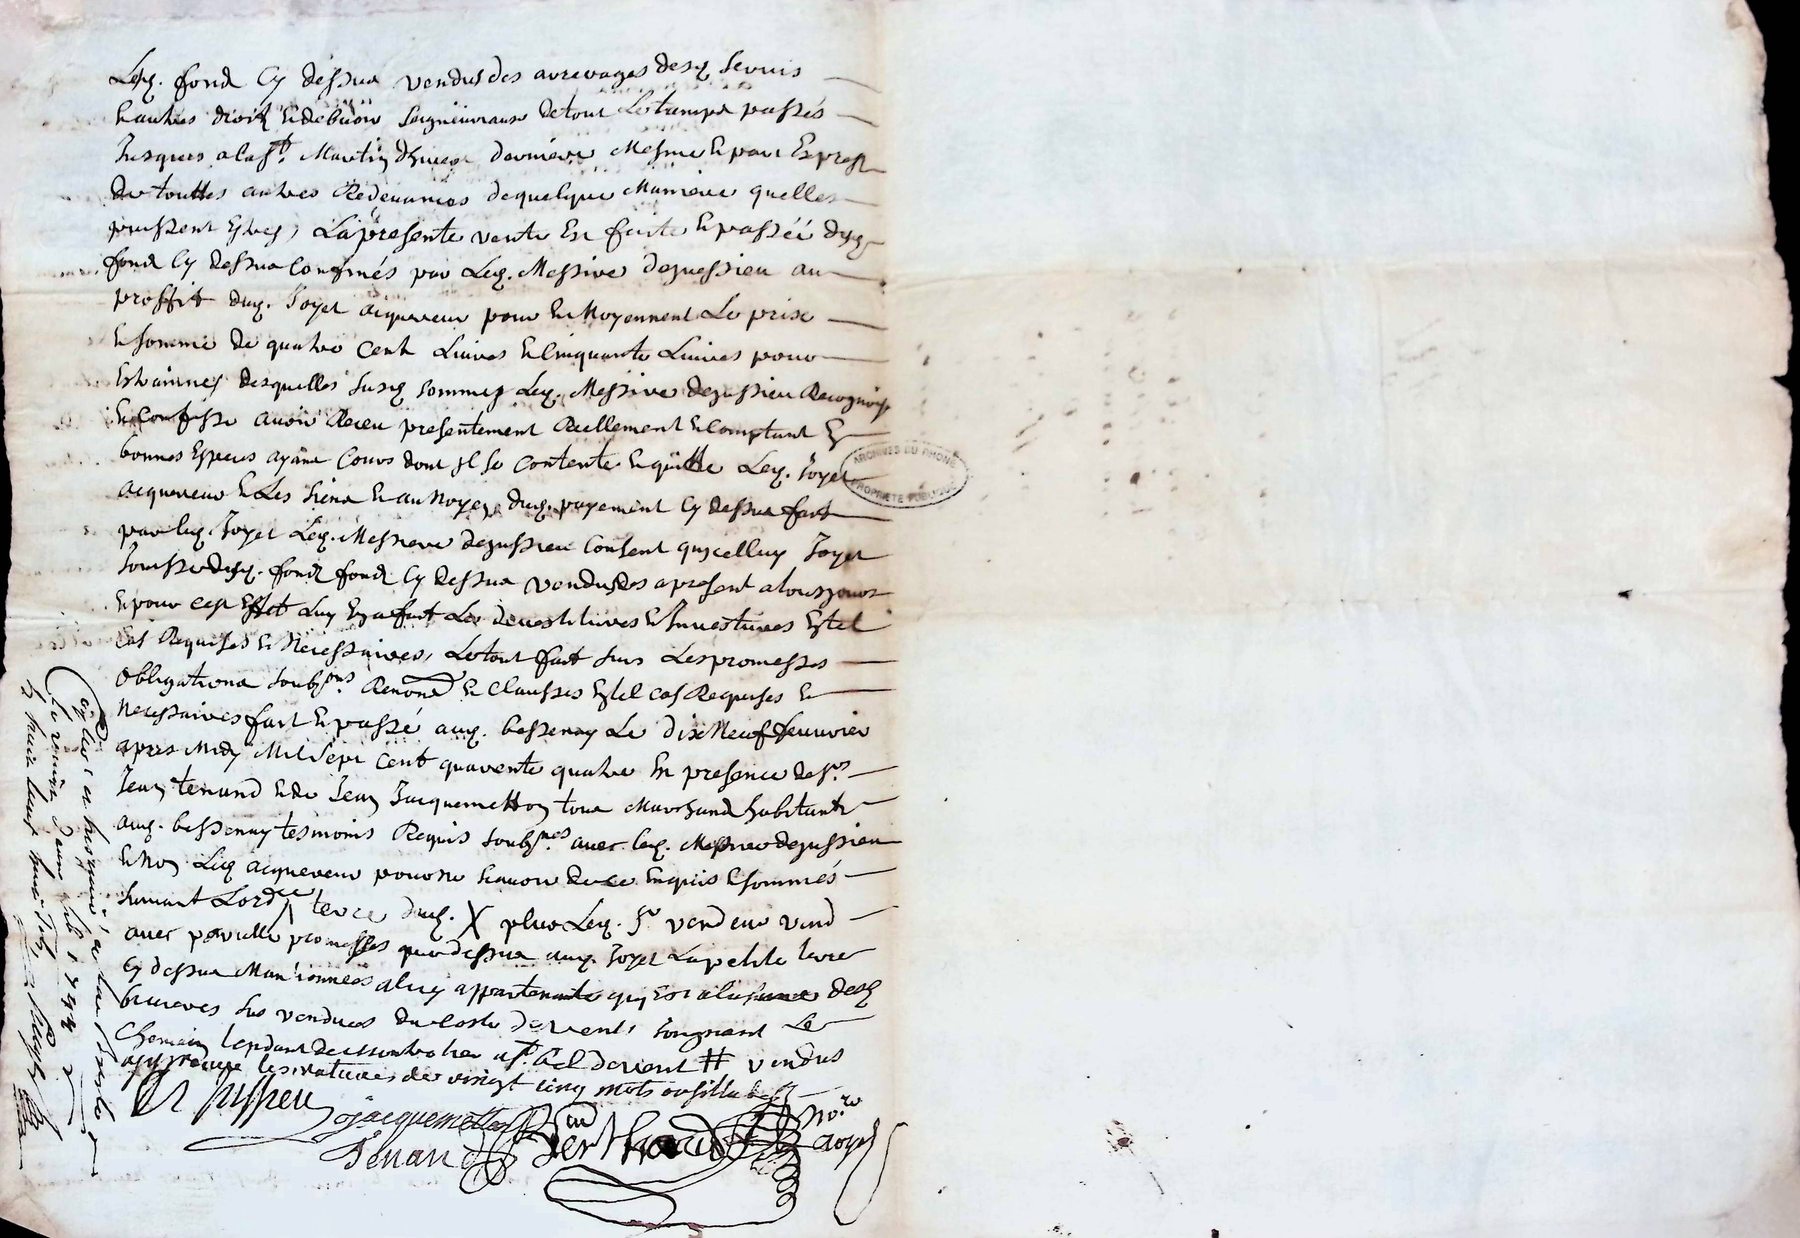 Lesq. fond Cy dessus vendus des arrerages desq servis
Et autres droits Et debvoir seigneuriaux de tout Le temps passés
Jusques a la st. Martin dhiver derniere Mesme Et par Expres
De touttes autres Redevances de quelque Maniere quelles
puissent Estres, La presente vente Est faite Et passéé desq
fond Cy dessus Confinés par Leq. Messire dejussieu au
proffit duq. Joyet acquereur pour Et Moyennent Le prix
Et somme de quatre Cent Livres Et Cinquante Livres pour
Estrainnes desquelles susq sommes Leq. Messire dejussieu Recognois
Et Confesse avoir Receu presentement Reellement Et Comptant En
bonnes Especes ayant Cours dont Il se Contente Et quitte Leq. Joyet
acquereur Et Les siens Et au Moyen duq. payement Cy dessus fait
par leq. Joyet Leq. Messire dejussieu Consent quicelluy Joyet
Jouisse desq. fond fond Cy dessus vendus des apresent a tousjours
Et pour cest Effet Luy En a fait Les devestitures Et Investitures En tel
Cas Requises Et Necessaires, Le tout fait sous Les promesses
Obligations soubsons. Renond Et Clausses En tel cas Requises Et
Necessaires fait Et passé auq. bessenay Le dix Neuf feuvrier
apres Midy Mil sept cent quarente quatre En presence de sr.
Jean tenand Et de Jean Jacquemetton tous Marchand habitants
auq. bessenay tesmoins Requis soubsnes. avec leq. Messire dejussieu
Et Non Leq acquereur pour ne scavoir de ce Enquis Et sommés
suivant Lordce terre duq. X plus Leq. sr vendeur vend
avec pareille promesses que dessus auq. Joyet La petite terre
Cy dessus Mantionnées a luy appartenante qui Est a la desq
bruieres sus vendues du Costé de vent, Joignant Le
Chemin tendant de a st. bel de vent # vendus
approuvé les ratures de vingt cinq mots ou sillabes
De Jussieu
Jacquemetton
Tenand
Berthaud
No.re
Royal
Conllé a
Le vingt deux feb. 1744
ARCHIVES DU RHONE
PROPRIÉTÉ PUBLIQUE